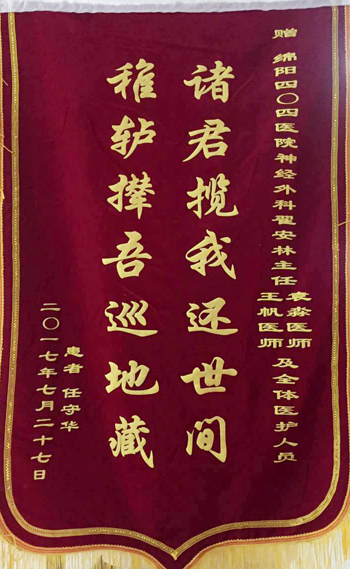 赠 绵阳四〇四医院神经外科翟安林主任
袁淼医师
王帆医师
及全体医护人员
诸君揽我还世间
稚轳撵吾巡地藏
患者 任守华
二〇一七年七月二十七日